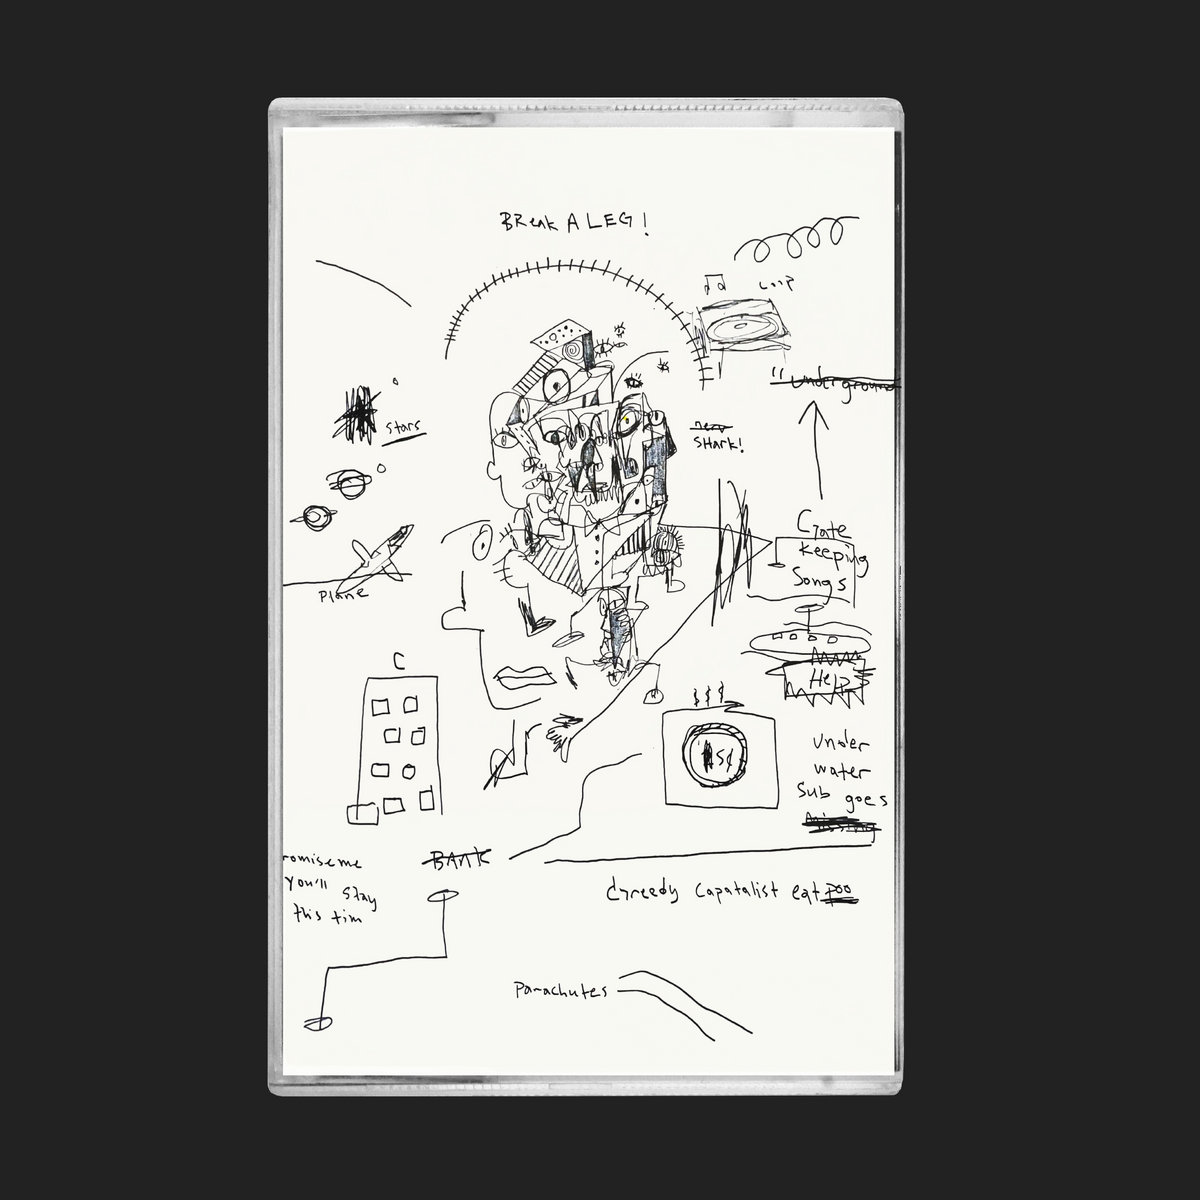 BReak A LEG!
LOOP
"Underground
stars
new
SHArk!
Crate
Keeping
Songs
Plane
C
Help
$$$
Under
water
Sub goes
Missing
BANK
romise me
you'll stay
this tim
Greedy Capatalist eat poo
Parachutes